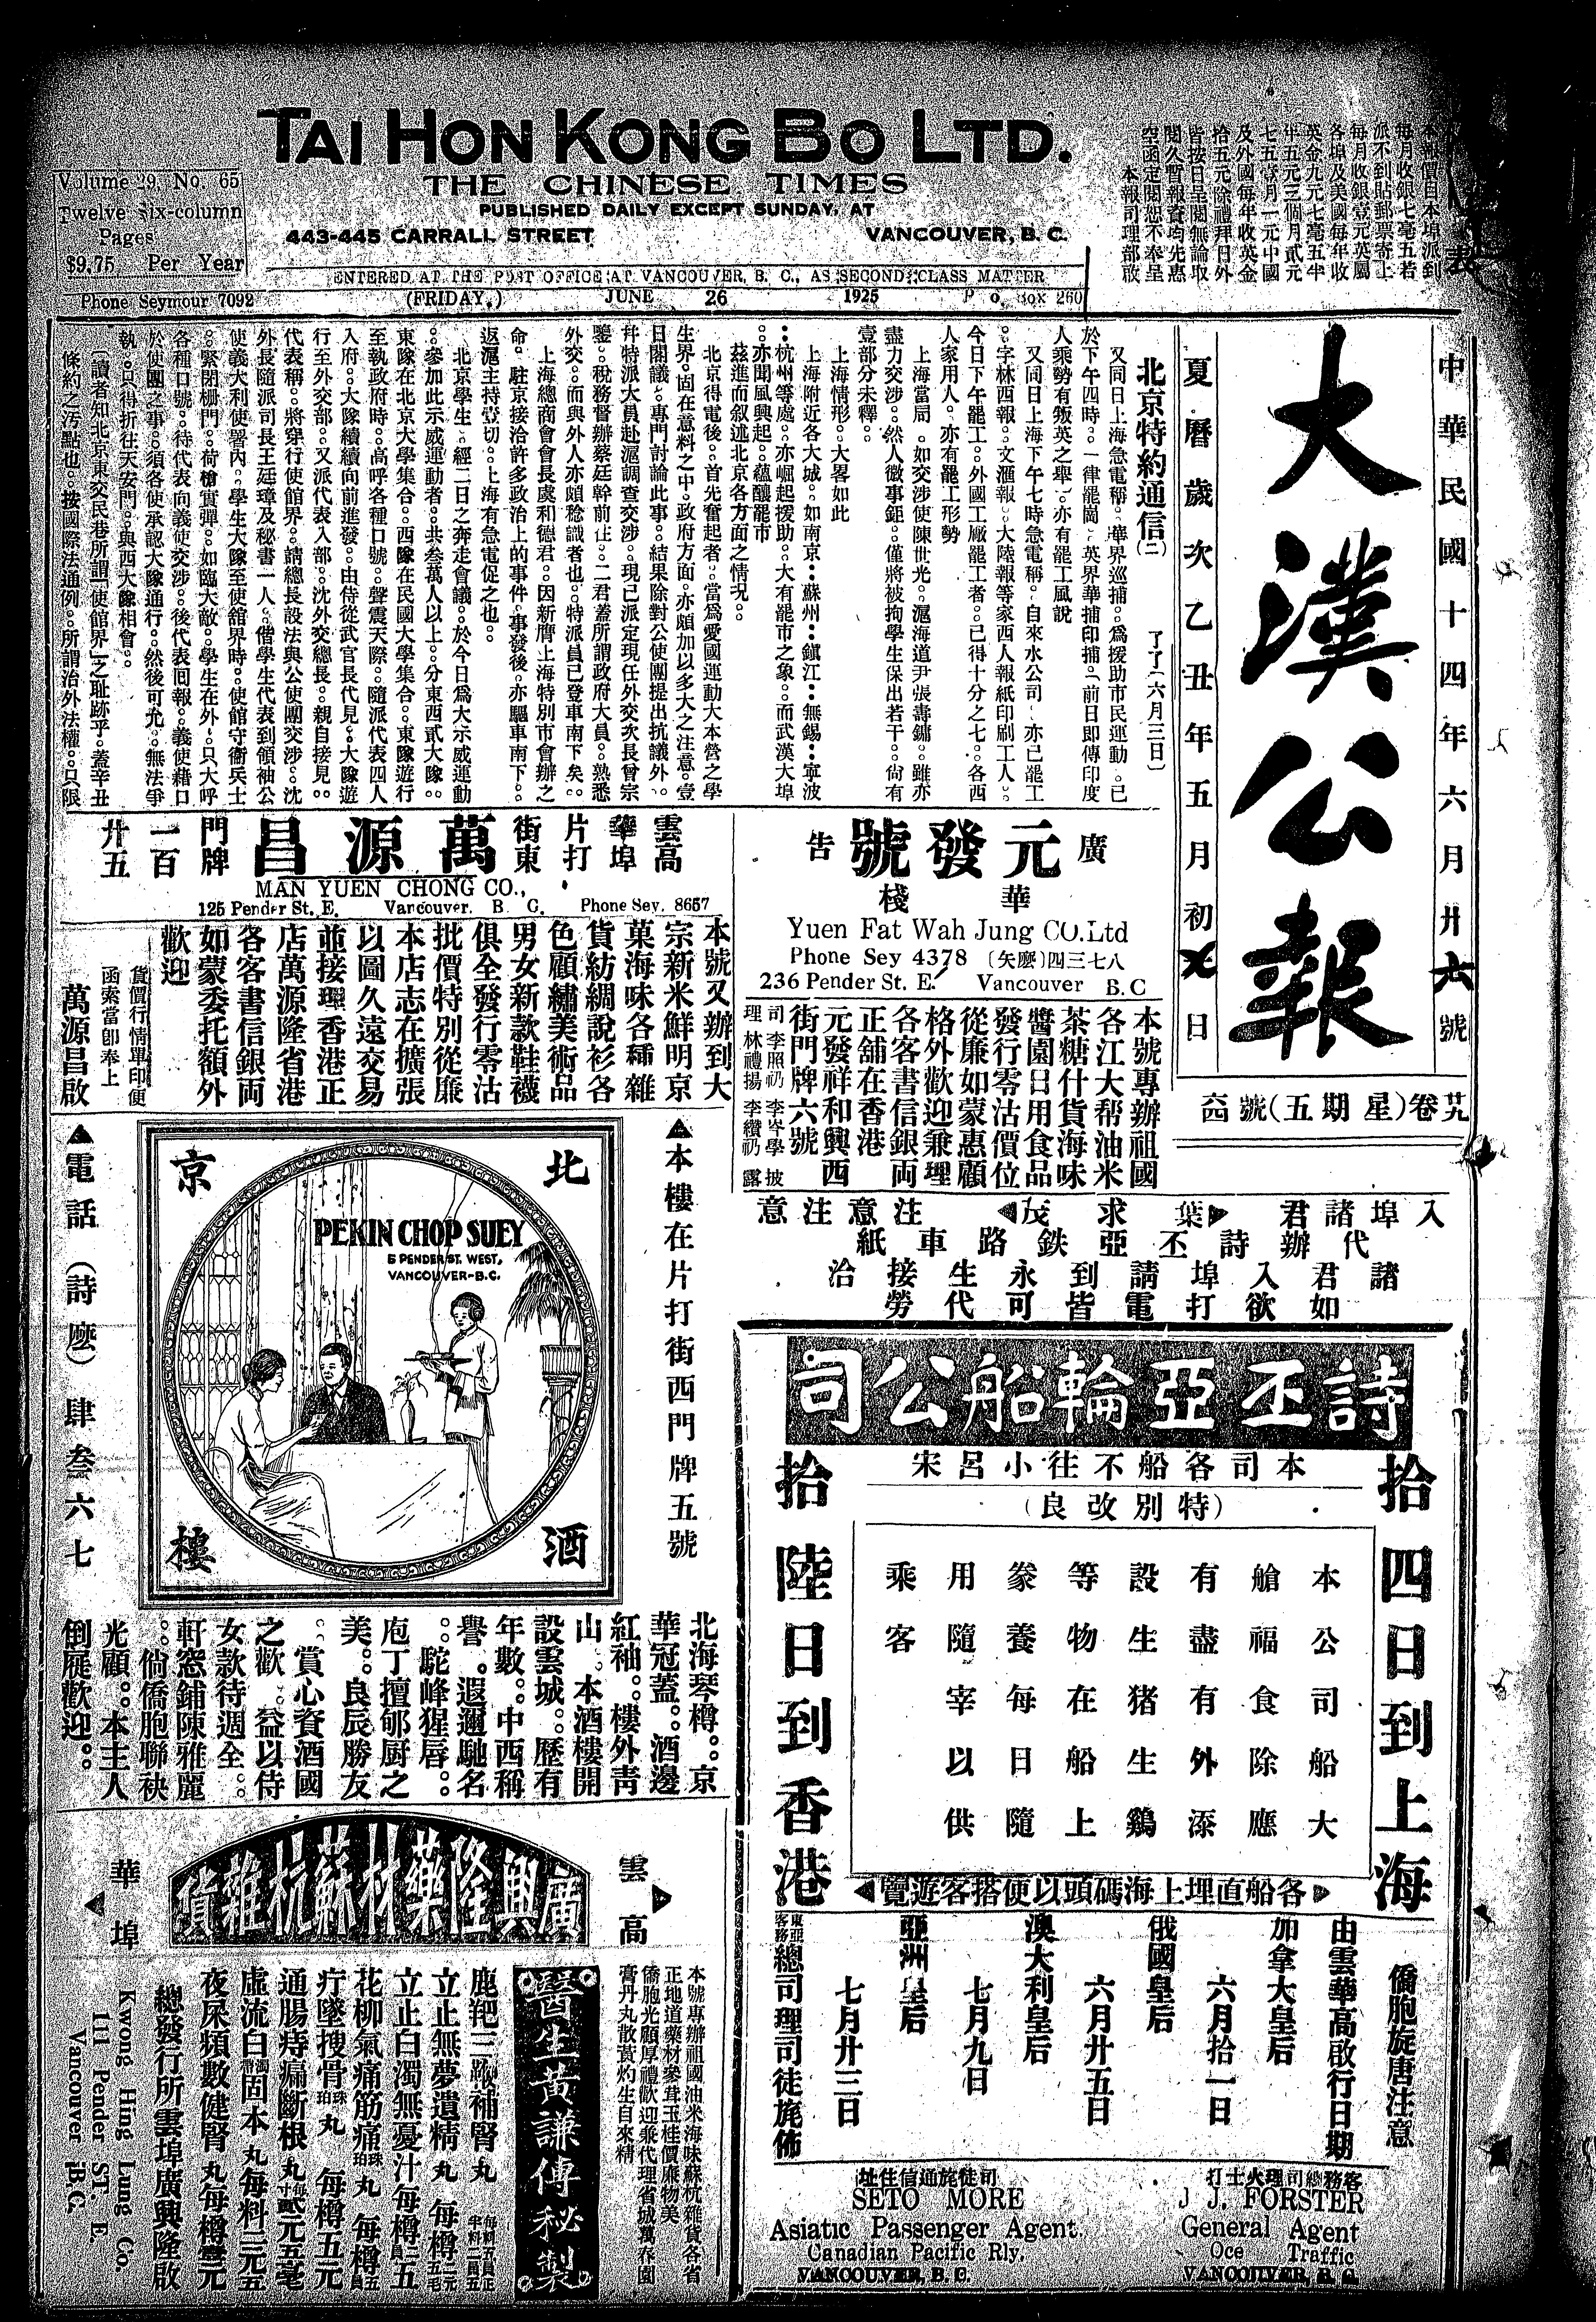 TAI HON KONG BO LTD.
THE CHINESE TIMES
PUBLISHED DAILY EXCEPT SUNDAY, AT
443-445 CARRALL STREET VANCOUVER, B. C.
Volume 29, No. 65
Twelve Six-column
Pages
$9.75 Per Year
Phone Seymour 7092
ENTERED AT THE POST OFFICE AT VANCOUVER, B. C., AS SECOND CLASS MATTER
(FRIDAY.) JUNE 26 1925 P. o. Box 260
中華民國十四年六月廿六號
大漢公報
夏曆歲次乙丑年五月初 日
北京特約通信(二) 了了(六月三日)
又同日上海急電稱。華界巡捕。爲援助市民運動。已
於下午四時。一律罷崗。英界華捕印捕。前日即傳印度
人乘勢有叛英之舉。亦有罷工風說
又同日上海下午七時急電稱。自來水公司。亦已罷工
。字林西報。文滙報。大陸報等家西人報紙印刷工人。
今日下午罷工。外國工廠罷工者。已得十分之七。各西
人家用人。亦有罷工形勢
上海當局。如交涉使陳世光。滬海道尹張壽鏞。雖亦
盡力交涉。然人微事鉅。僅將被拘學生保出若干。尙有
壹部分未釋。
上海情形。大畧如此
上海附近各大城。如南京：蘇州：鎭江：無錫：寧波
：杭州等處。亦崛起援助。大有罷市之象。而武漢大埠
。亦聞風興起。蘊釀罷市
茲進而叙述北京各方面之情况。
北京得電後。首先奮起者。當爲愛國運動大本營之學
生界。固在意料之中。政府方面。亦頗加以多大之注意。壹
日閣議。專門討論此事。結果除對公使團提出抗議外。
幷特派大員赴滬調查交涉。現已派定現任外交次長曾宗
鑒。稅務督辦蔡廷幹前往。二君蓋所謂政府大員。熟悉
外交。而與外人亦頗稔識者也。特派員已登車南下矣。
上海總商會會長虞和德君。因新膺上海特別市會辦之
命。駐京接洽許多政治上的事件。事發後。亦驅車南下。
返滬主持壹切。上海有急電促之也。
北京學生。經二日之奔走會議。於今日爲大示威運動
。參加此示威運動者。共叁萬人以上。分東西貳大隊。
東隊在北京大學集合。西隊在民國大學集合。東隊遊行
至執政府時。高呼各種口號。聲震天際。隨派代表四人
入府。大隊續續向前進發。由侍從武官長代見。大隊遊
行至外交部。又派代表入部。沈外交總長。親自接見。
代表稱。將穿行使館界。請總長設法與公使團交涉。沈
外長隨派司長王廷璋及秘書一人。偕學生代表到領袖公
使義大利使署內。學生大隊至使舘界時。使館守衞兵士
。緊閉柵門。荷槍實彈。如臨大敵。學生在外。只大呼
各種口號。待代表向義使交涉。後代表回報。義使藉口
於使團之事。須各使承認大隊通行。然後可允。無法爭
執。只得折往天安門。與西大隊相會。
(讀者知北京東交民巷所謂「使館界」之耻跡乎。蓋辛丑
條約之汚點也。按國際法通例。所謂治外法權。只限
(星期五)
雲高華埠片打街東 萬源昌 門牌一百廿五
MAN YUEN CHONG CO.,
125 Pender St. E. Vancouver. B. C. Phone Sey. 8657
本號又辦到大
宗新米鮮明京
菓海味各種雜
貨紡綢說衫各
色顧繡美術品
男女新款鞋襪
俱全發行零沽
批價特別從廉
本店志在擴張
以圖久遠交易
並接理香港正
店萬源隆省港
各客書信銀両
如蒙委托額外
歡迎
貨價行情單印便
函索當卽奉上
萬源昌啟
元發號 廣告
華棧
Yuen Fat Wah Jung CO.Ltd
Phone Sey 4378 (矢麽)四三七八
236 Pender St. E. Vancouver B.C
本號專辦祖國
各江大帮油米
茶糖什貨海味
醬園日用食品
發行零沽價位
從廉如蒙惠顧
格外歡迎兼理
各客書信銀両
正舖在香港
元發祥和興西
街門牌六號
入埠諸君 葉求茂 注意注意
代辦詩丕亞鉄路車紙
諸君入埠請到永生接洽
如欲打電皆可代勞
▲本樓在片打街西門牌五號
北京酒樓
PEKIN CHOP SUEY
5 PENDER ST. WEST,
VANCOUVER-B.C.
▲電話(詩麽)肆叁六七
北海琴樽。京
華冠蓋。酒邊
紅袖。樓外靑
山。本酒樓開
設雲城。歷有
年數。中西稱
譽。遐邇馳名
。駝峰猩唇。
庖丁擅郇厨之
美。良辰勝友
。賞心資酒國
之歡。益以侍
女款待週全。
軒窓鋪陳雅麗
。倘僑胞聯袂
光顧。本主人
倒屣歡迎。
詩丕亞輪船公司
本司各船不往小呂宋
(特別改良)
拾四日到上海
拾陸日到香港
本公司船大
艙福食除應
有盡有外添
設生猪生鷄
等物在船上
豢養每日隨
用隨宰以供
乘客
各船直埋上海碼頭以便搭客遊覽
僑胞旋唐注意
由雲華高啟行日期
加拿大皇后 六月拾一日
俄國皇后 六月廿五日
澳大利皇后 七月九日
亞洲皇后 七月廿三日
東亞客務總司理司徒旄佈
客務總司理火士打
J. J. FORSTER
General Agent
Oce Traffic
VANCOUVER, B. C.
司徒旄通信住址
SETO MORE
Asiatic Passenger Agent.
Canadian Pacific Rly.
VANCOUVER, B. C.
雲高華埠
廣興隆藥材蘇杭雜貨
本號專辦祖國油米海味蘇杭雜貨各省
正地道藥材參茸玉桂價廉物美
僑胞光顧厚禮歡迎兼代理省城萬春園
膏丹丸散黃灼生自來精
醫生黃謙傳秘製
鹿𦍲三鞭補腎丸
立止無夢遺精丸
立止白濁無憂汁
花柳氣痛筋痛珠珀丸
疔墜搜骨珠珀丸 每樽五元
通腸痔痛斷根丸
虛流白濁固本丸每料三元五
夜屎頻數健腎丸每樽壹元
總發行所雲埠廣興隆啟
Kwong Hing Lung Co.
111 Pender ST. E.
Vancouver B.C.